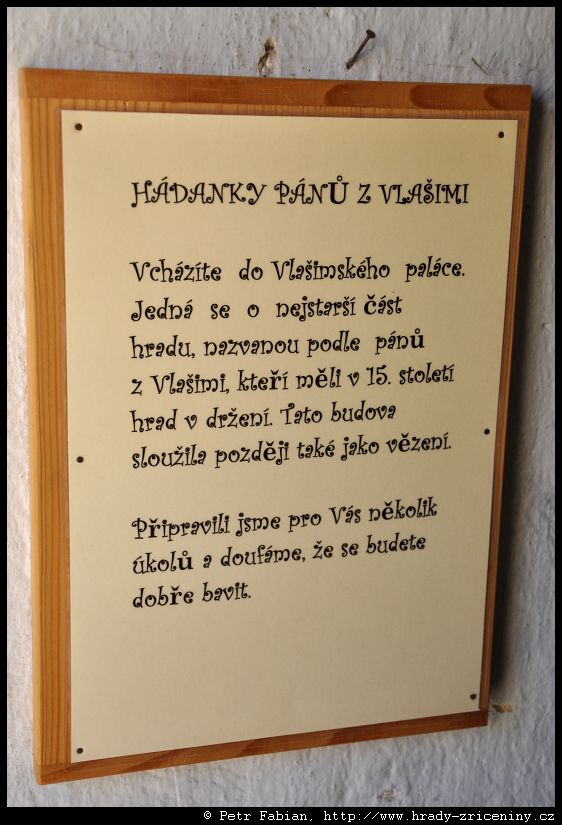 HÁDANKY PÁNŮ Z VLAŠIMI
Vcházíte do Vlašimského paláce.
Jedná se o nejstarší část
hradu, nazvanou podle pánů
z Vlašimi, kteří měli v 15. století
hrad v držení. Tato budova
sloužila později také jako vězení.
Připravili jsme pro Vás několik
úkolů a doufáme, že se budete
dobře bavit.
© Petr Fabian, http://www.hrady-zriceniny.cz